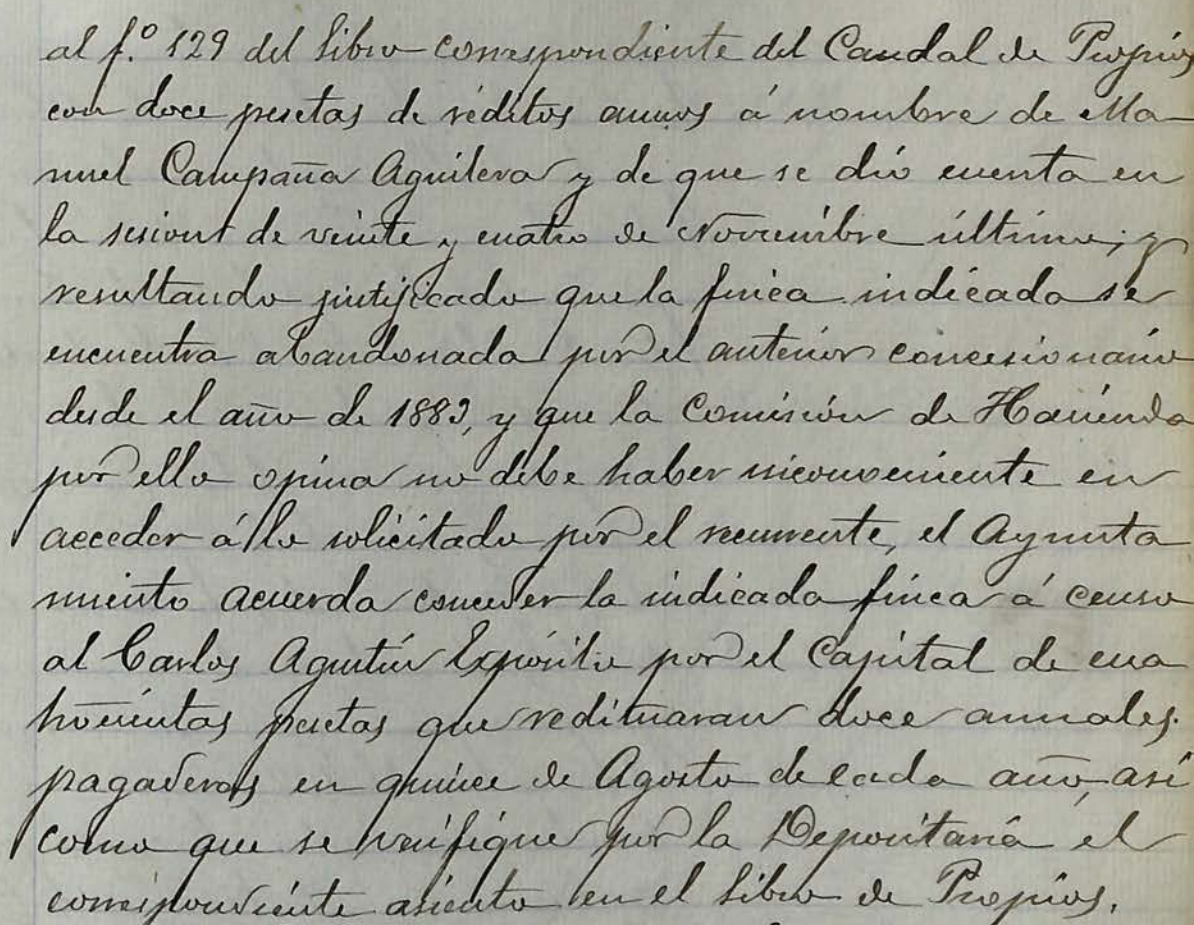 al f.º 129 del libro correspondiente del Caudal de Propios
con doce pesetas de réditos anuos á nombre de Ma
nuel Campaña Aguilera y de que se dió cuenta en
la sesion de veinte y cuatro de Noviembre último; y
resultando justificado que la finca indicada se
encuentra abandonada por el anterior concesionario
desde el año de 1889, y que la Comisión de Hacienda
por ello opina no debe haber inconveniente en
acceder á lo solicitado por el recurrente, el Ayunta
miento acuerda conceder la indicada finca á censo
al Carlos Agustín Expósito por el Capital de cua
trocientas pesetas que redituaran doce anuales
pagaderas en quince de Agosto de cada año, así
como que se verifique por la Depositaría el
correspondiente asiento en el libro de Propios.